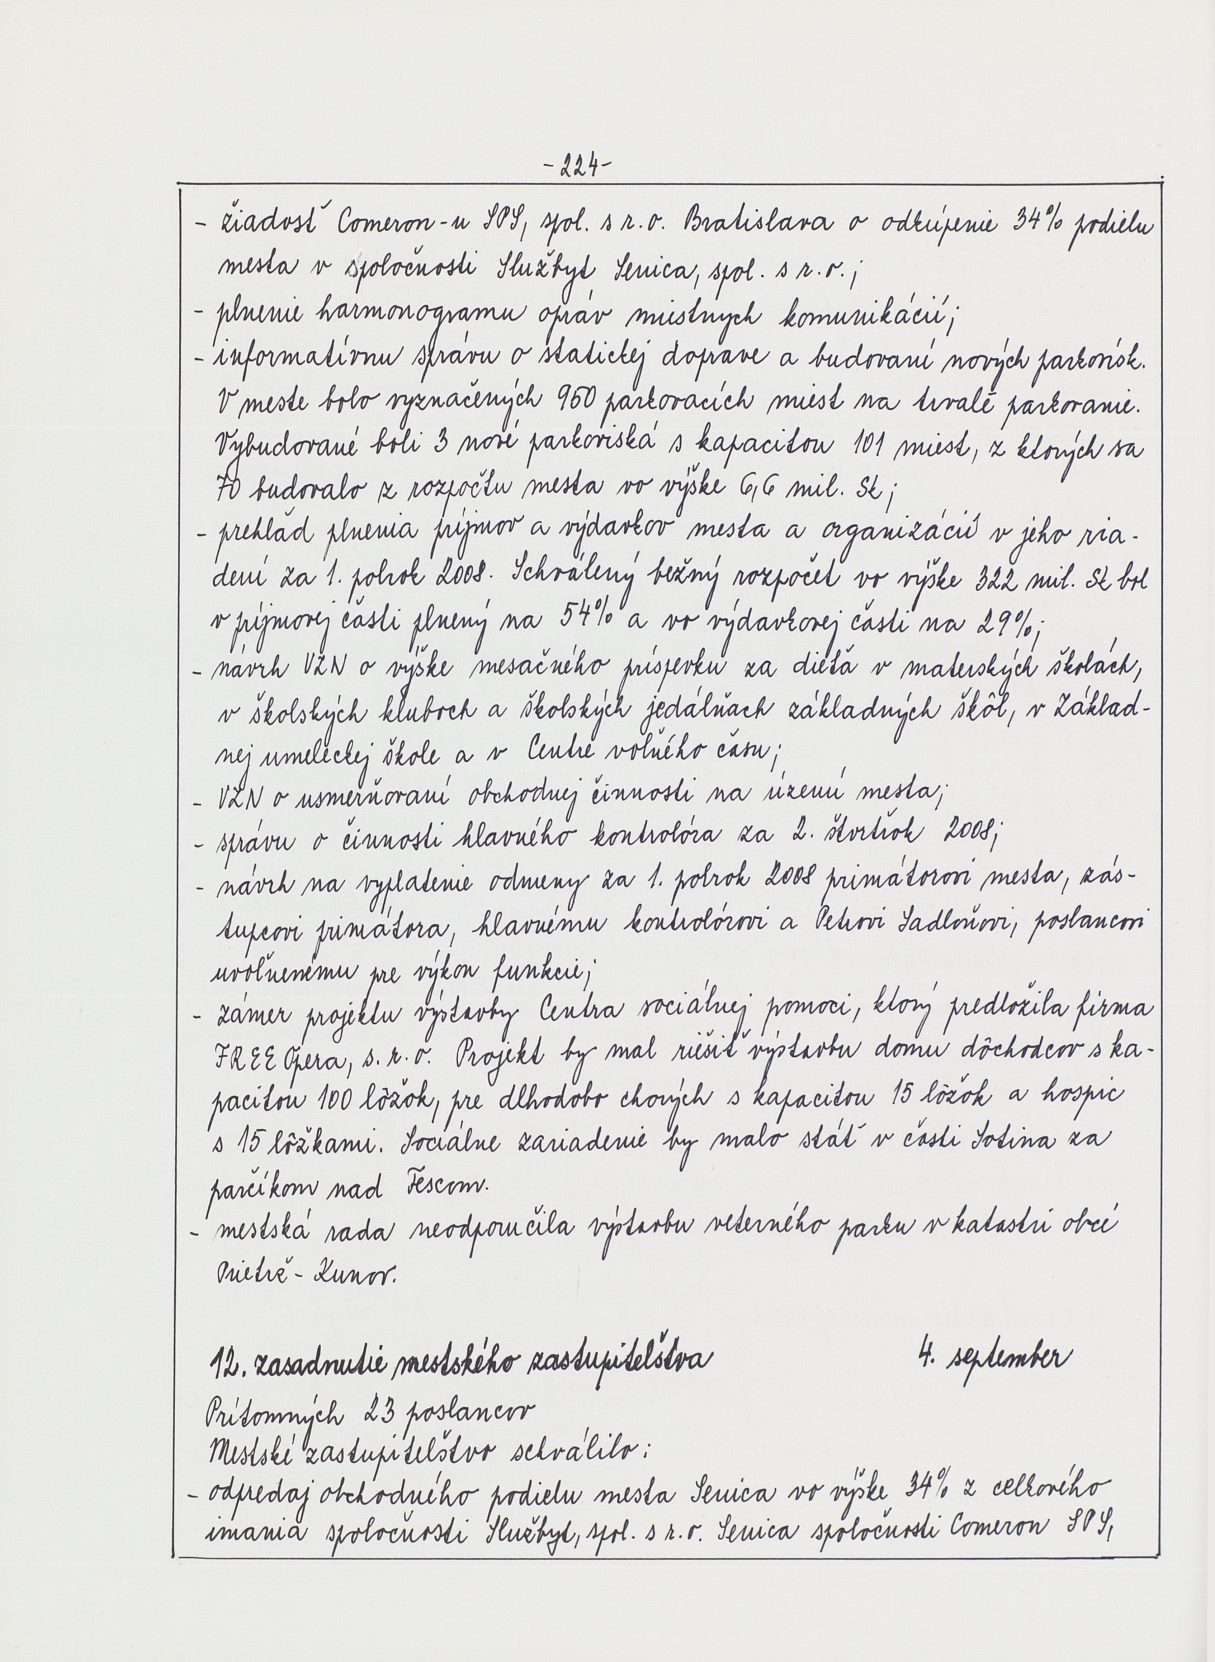 -224-
- žiadosť Comeron-u SPS, spol. s r.o. Bratislava o odkúpenie 34% podielu
mesta v spoločnosti Službyt Senica, spol. s r.o.;
- plnenie harmonogramu opráv miestnych komunikácií;
- informatívnu správu o statickej doprave a budovaní nových parkovísk.
V meste bolo vyznačených 950 parkovacích miest na trvalé parkovanie.
Vybudované boli 3 nové parkoviská s kapacitou 101 miest, z ktorých sa
70 budovalo z rozpočtu mesta vo výške 6,6 mil. Sk;
- prehľad plnenia príjmov a výdavkov mesta a organizácií v jeho ria-
dení za 1. polrok 2008. Schválený bežný rozpočet vo výške 322 mil. Sk bol
v príjmovej časti plnený na 54% a vo výdavkovej časti na 29%;
- návrh VZN o výške mesačného príspevku za dieťa v materských školách,
v školských kluboch a školských jedálňach základných škôl, v Základ-
nej umeleckej škole a v Centre voľného času;
- VZN o usmerňovaní obchodnej činnosti na území mesta;
- správu o činnosti hlavného kontrolóra za 2. štvrťrok 2008;
- návrh na vyplatenie odmeny za 1. polrok 2008 primátorovi mesta, zás-
tupcovi primátora, hlavnému kontrolórovi a Petrovi Sadloňovi, poslancovi
uvoľnenému pre výkon funkcie;
- zámer projektu výstavby Centra sociálnej pomoci, ktorý predložila firma
FREE Opera, s.r.o. Projekt by mal riešiť výstavbu domu dôchodcov s ka-
pacitou 100 lôžok, pre dlhodobo chorých s kapacitou 15 lôžok a hospic
s 15 lôžkami. Sociálne zariadenie by malo stáť v časti Sotina za
parčíkom nad Tescom.
- mestská rada neodporučila výstavbu veterného parku v katastri obcí
Prietrž - Kunov.
12. zasadnutie mestského zastupiteľstva 4. september
Prítomných 23 poslancov
Mestské zastupiteľstvo schválilo:
- odpredaj obchodného podielu mesta Senica vo výške 34% z celkového
imania spoločnosti Službyt, spol. s r.o. Senica spoločnosti Comeron SPS,